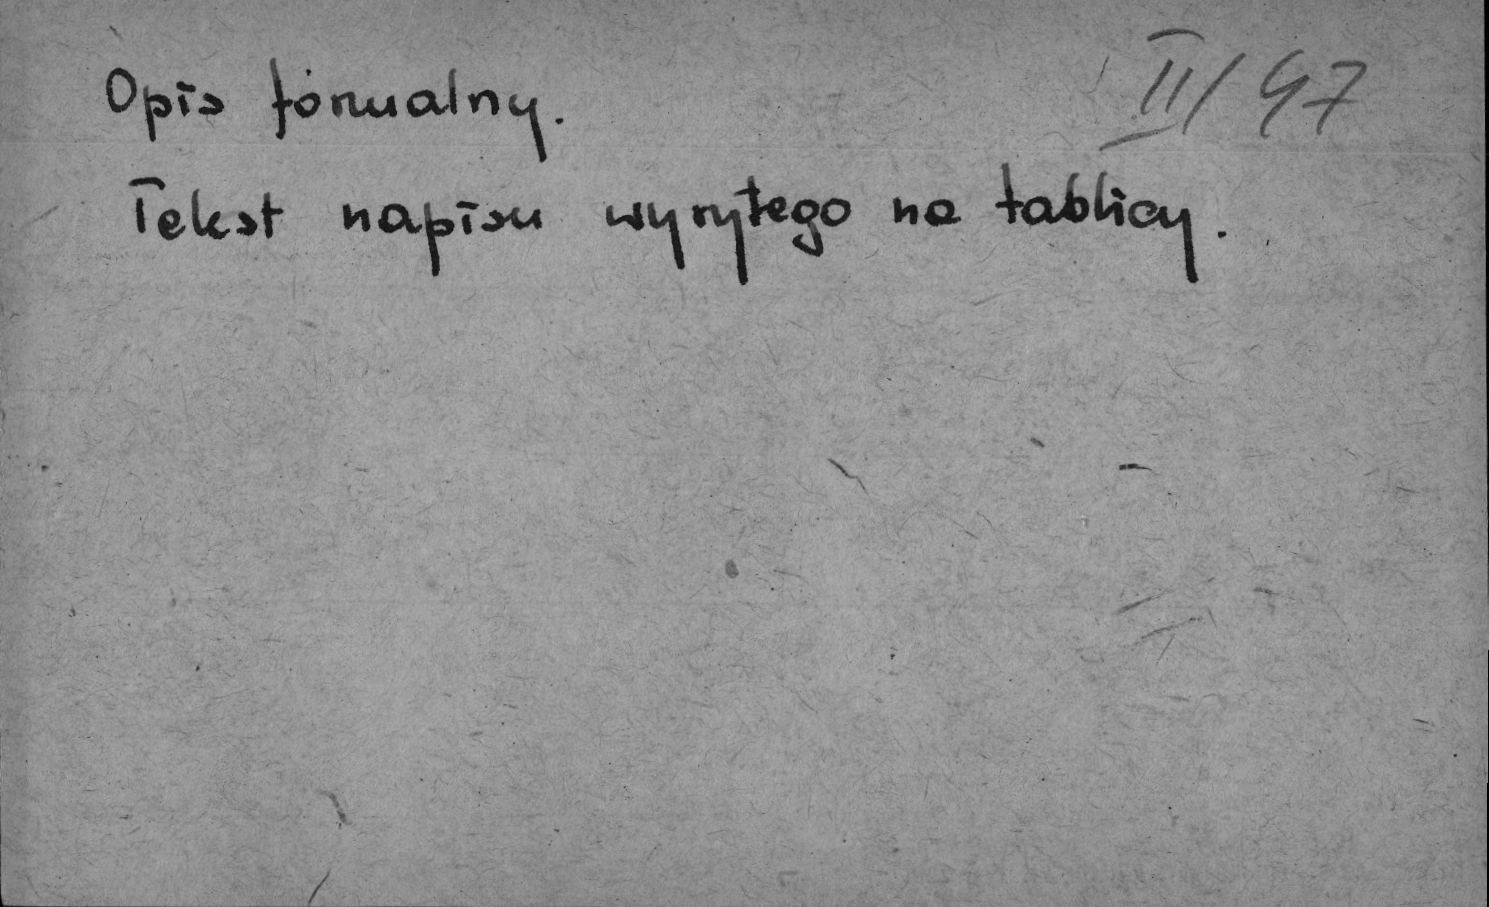 II/47
Opis formalny.
Tekst napisu wyrytego na tablicy.